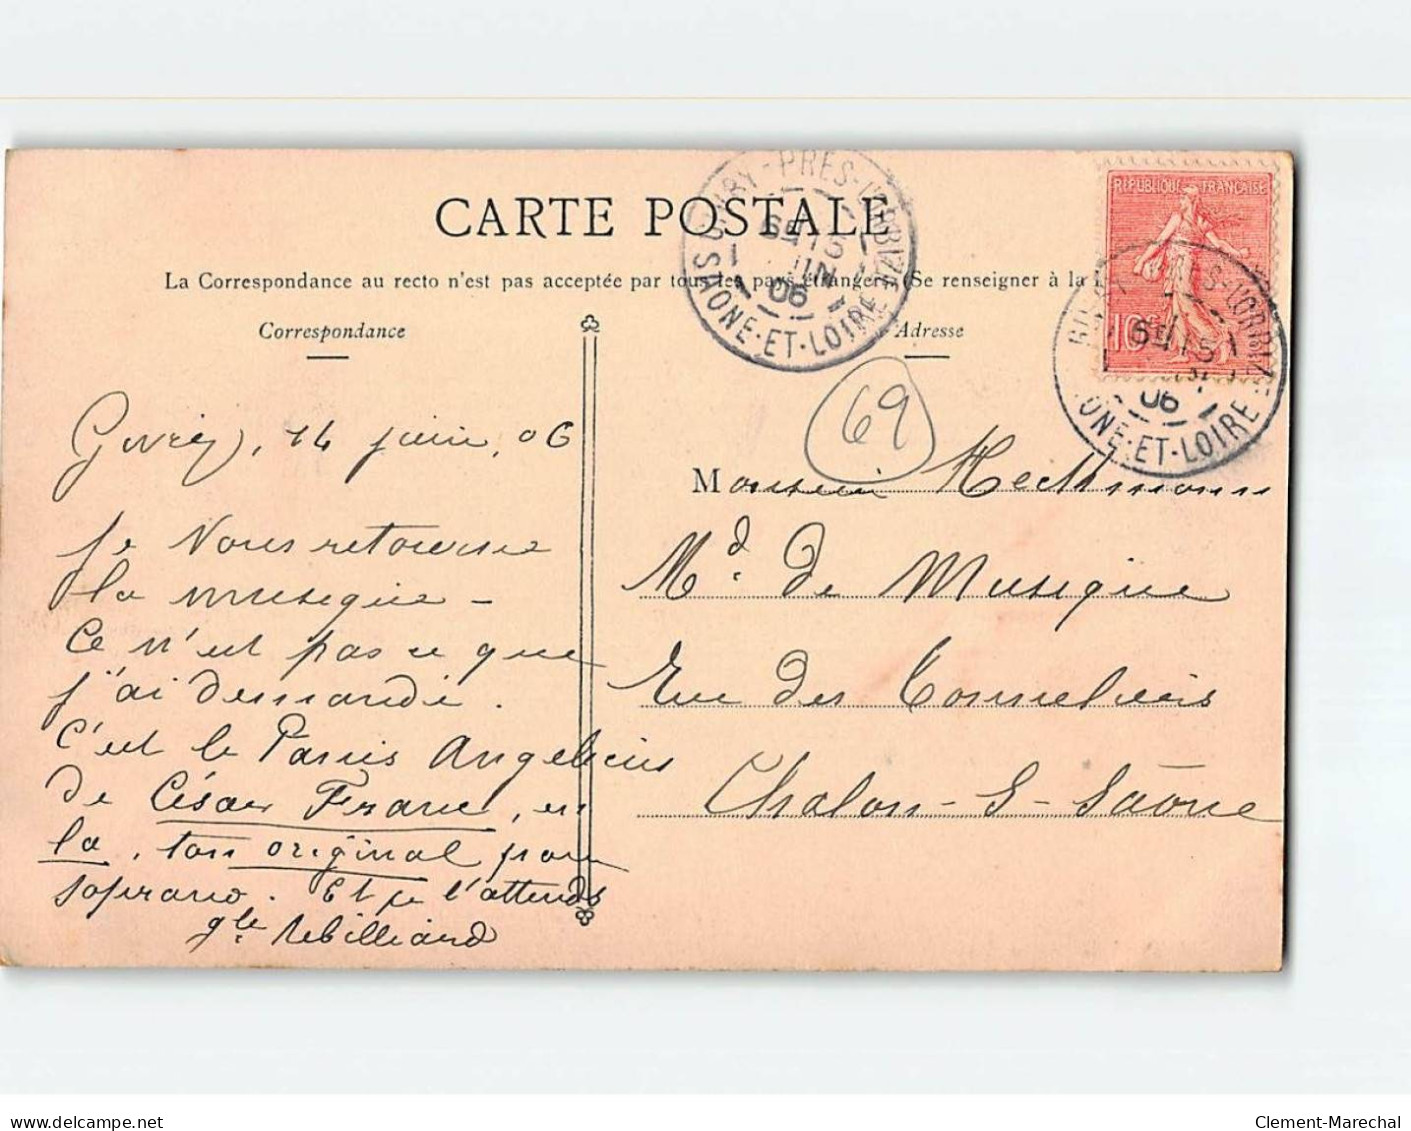 CARTE POSTALE
La Correspondance au recto n'est pas acceptée par tous les pays étrangers (Se renseigner à la
Correspondance
Adresse
GIVRY-PRÈS-L'ORBIZE
6E 15
JUIN
06
SAONE-ET-LOIRE
RÉPUBLIQUE FRANÇAISE
10c
S-L'ORBIZE
6E 15
06
ONE-ET-LOIRE
69
Givry, 14 juin, 06
Je Vous retourne
la musique -
Ce n'est pas ce que
j'ai demandé.
C'est le Panis Angelicus
de César Franc, en
la, ton original pour
soprano. Et je l'attends
gle Rebilliard
Monsieur Hechmann
Md. de Musique
Rue des Corneliers
Chalon-S-Saône
www.delcampe.net
Clement-Marechal